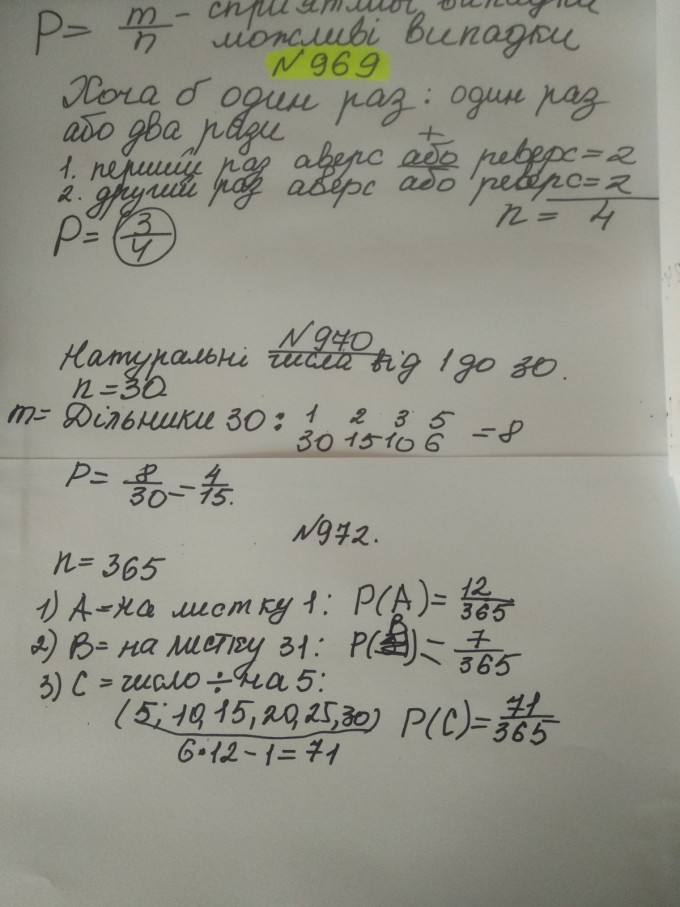 P = m/n - сприятливі випадки
можливі випадки
№969
Хоча б один раз: один раз
або два рази
+
1. перший раз аверс або реверс = 2
2. другий раз аверс або реверс = 2
n = 4
P = 3/4
№970
Натуральні числа від 1 до 30.
n = 30
m = Дільники 30: 1 2 3 5
30 15 10 6 = 8
P = 8/30 = 4/15.
№972.
n = 365
1) A = на листку 1: P(A) = 12/365
2) B = на листку 31: P(B) = 7/365
3) C = число ÷ на 5:
(5; 10, 15, 20, 25, 30) P(C) = 71/365
6·12 - 1 = 71